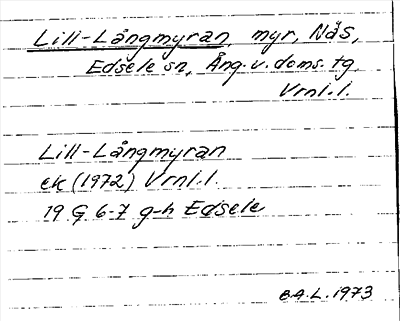 Lill-Långmyran, myr, Nås,
Edsele sn, Ång. v. doms. tg.
Vrnl. l.
Lill-Långmyran
ek (1972) Vrnl. l.
19 G 6-7 g-h Edsele
B.A.L. 1973